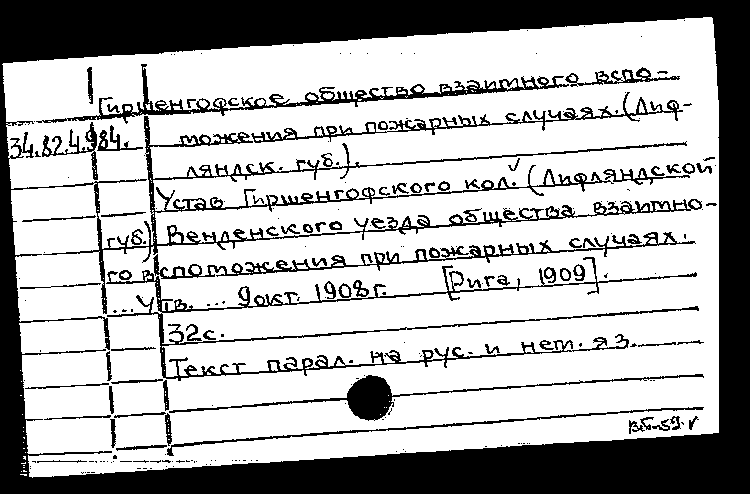 Гиршенгофское общество взаимного вспо-
34.82.4.984. можения при пожарных случаях. (Лиф-
ляндск. губ.).
Устав Гиршенгофского кол. (Лифляндской
губ.) Венденского уезда общества взаимно-
го вспоможения при пожарных случаях.
... Утв. ... 9 окт. 1908 г. [Рига, 1909].
32 с.
Текст парал. на рус. и нем. яз.